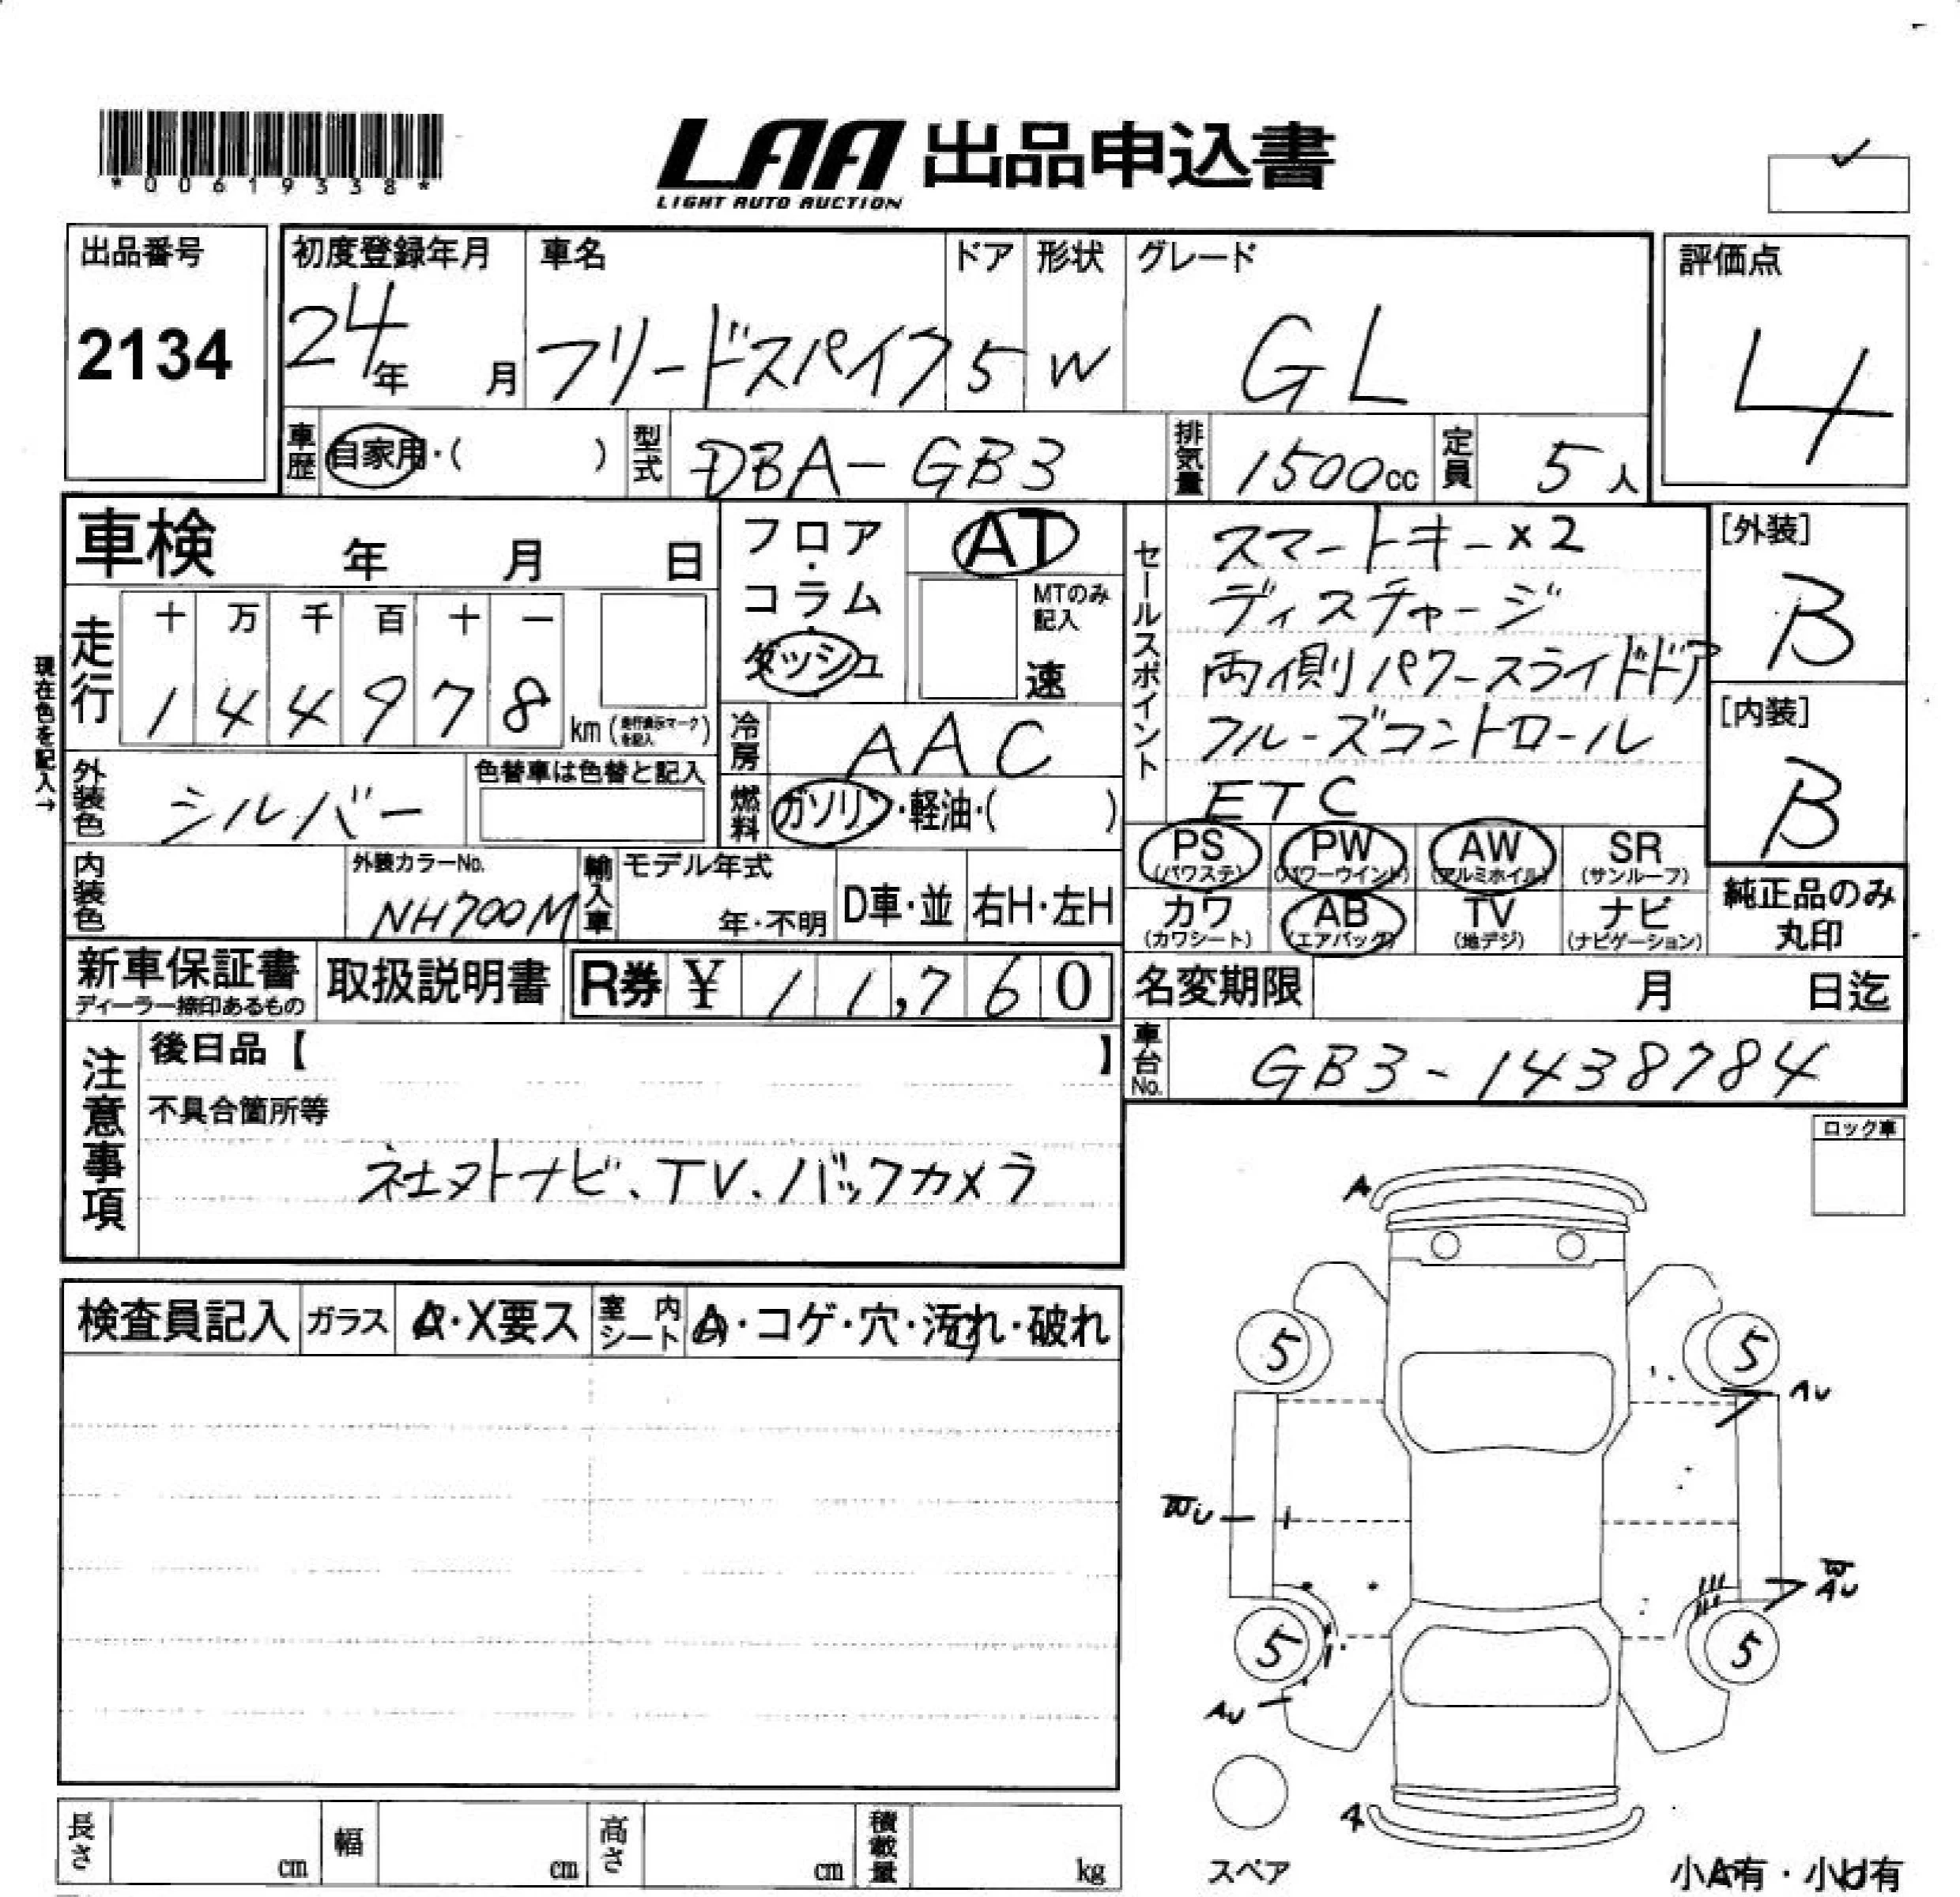 *00619338*
LAA 出品申込書
LIGHT AUTO AUCTION
出品番号
2134
初度登録年月
24年 月
車名
フリードスパイク
ドア
5
形状
W
グレード
GL
評価点
4
車歴
自家用・( )
型式
DBA-GB3
排気量
1500cc
定員
5人
車検 年 月 日
フロア・コラム・ダッシュ
AT
MTのみ記入
速
セールスポイント
スマートキー×2
ディスチャージ
両側パワースライドドア
クルーズコントロール
ETC
[外装]
B
[内装]
B
現在色を記入→
走行
十 万 千 百 十 一
1 4 4 9 7 8
km(走行表示マークを記入)
冷房
AAC
外装色
シルバー
色替車は色替と記入
燃料
ガソリン・軽油・( )
PS (パワステ)
PW (パワーウインド)
AW (アルミホイル)
SR (サンルーフ)
カワ (カワシート)
AB (エアバッグ)
TV (地デジ)
ナビ (ナビゲーション)
純正品のみ丸印
内装色
外装カラーNo.
NH700M
輸入車
モデル年式
年・不明
D車・並
右H・左H
新車保証書
ディーラー捺印あるもの
取扱説明書
R券 ¥ 11,760
名変期限 月 日迄
車台No.
GB3-1438784
注意事項
後日品【 】
不具合箇所等
社外ナビ、TV、バックカメラ
ロック車
検査員記入
ガラス
A・X要ス
室内シート
A・コゲ・穴・汚れ・破れ
A
5
5
AU
WU
W
AU
5
5
AU
A
スペア
小A有・小U有
長さ cm
幅 cm
高さ cm
積載量 kg